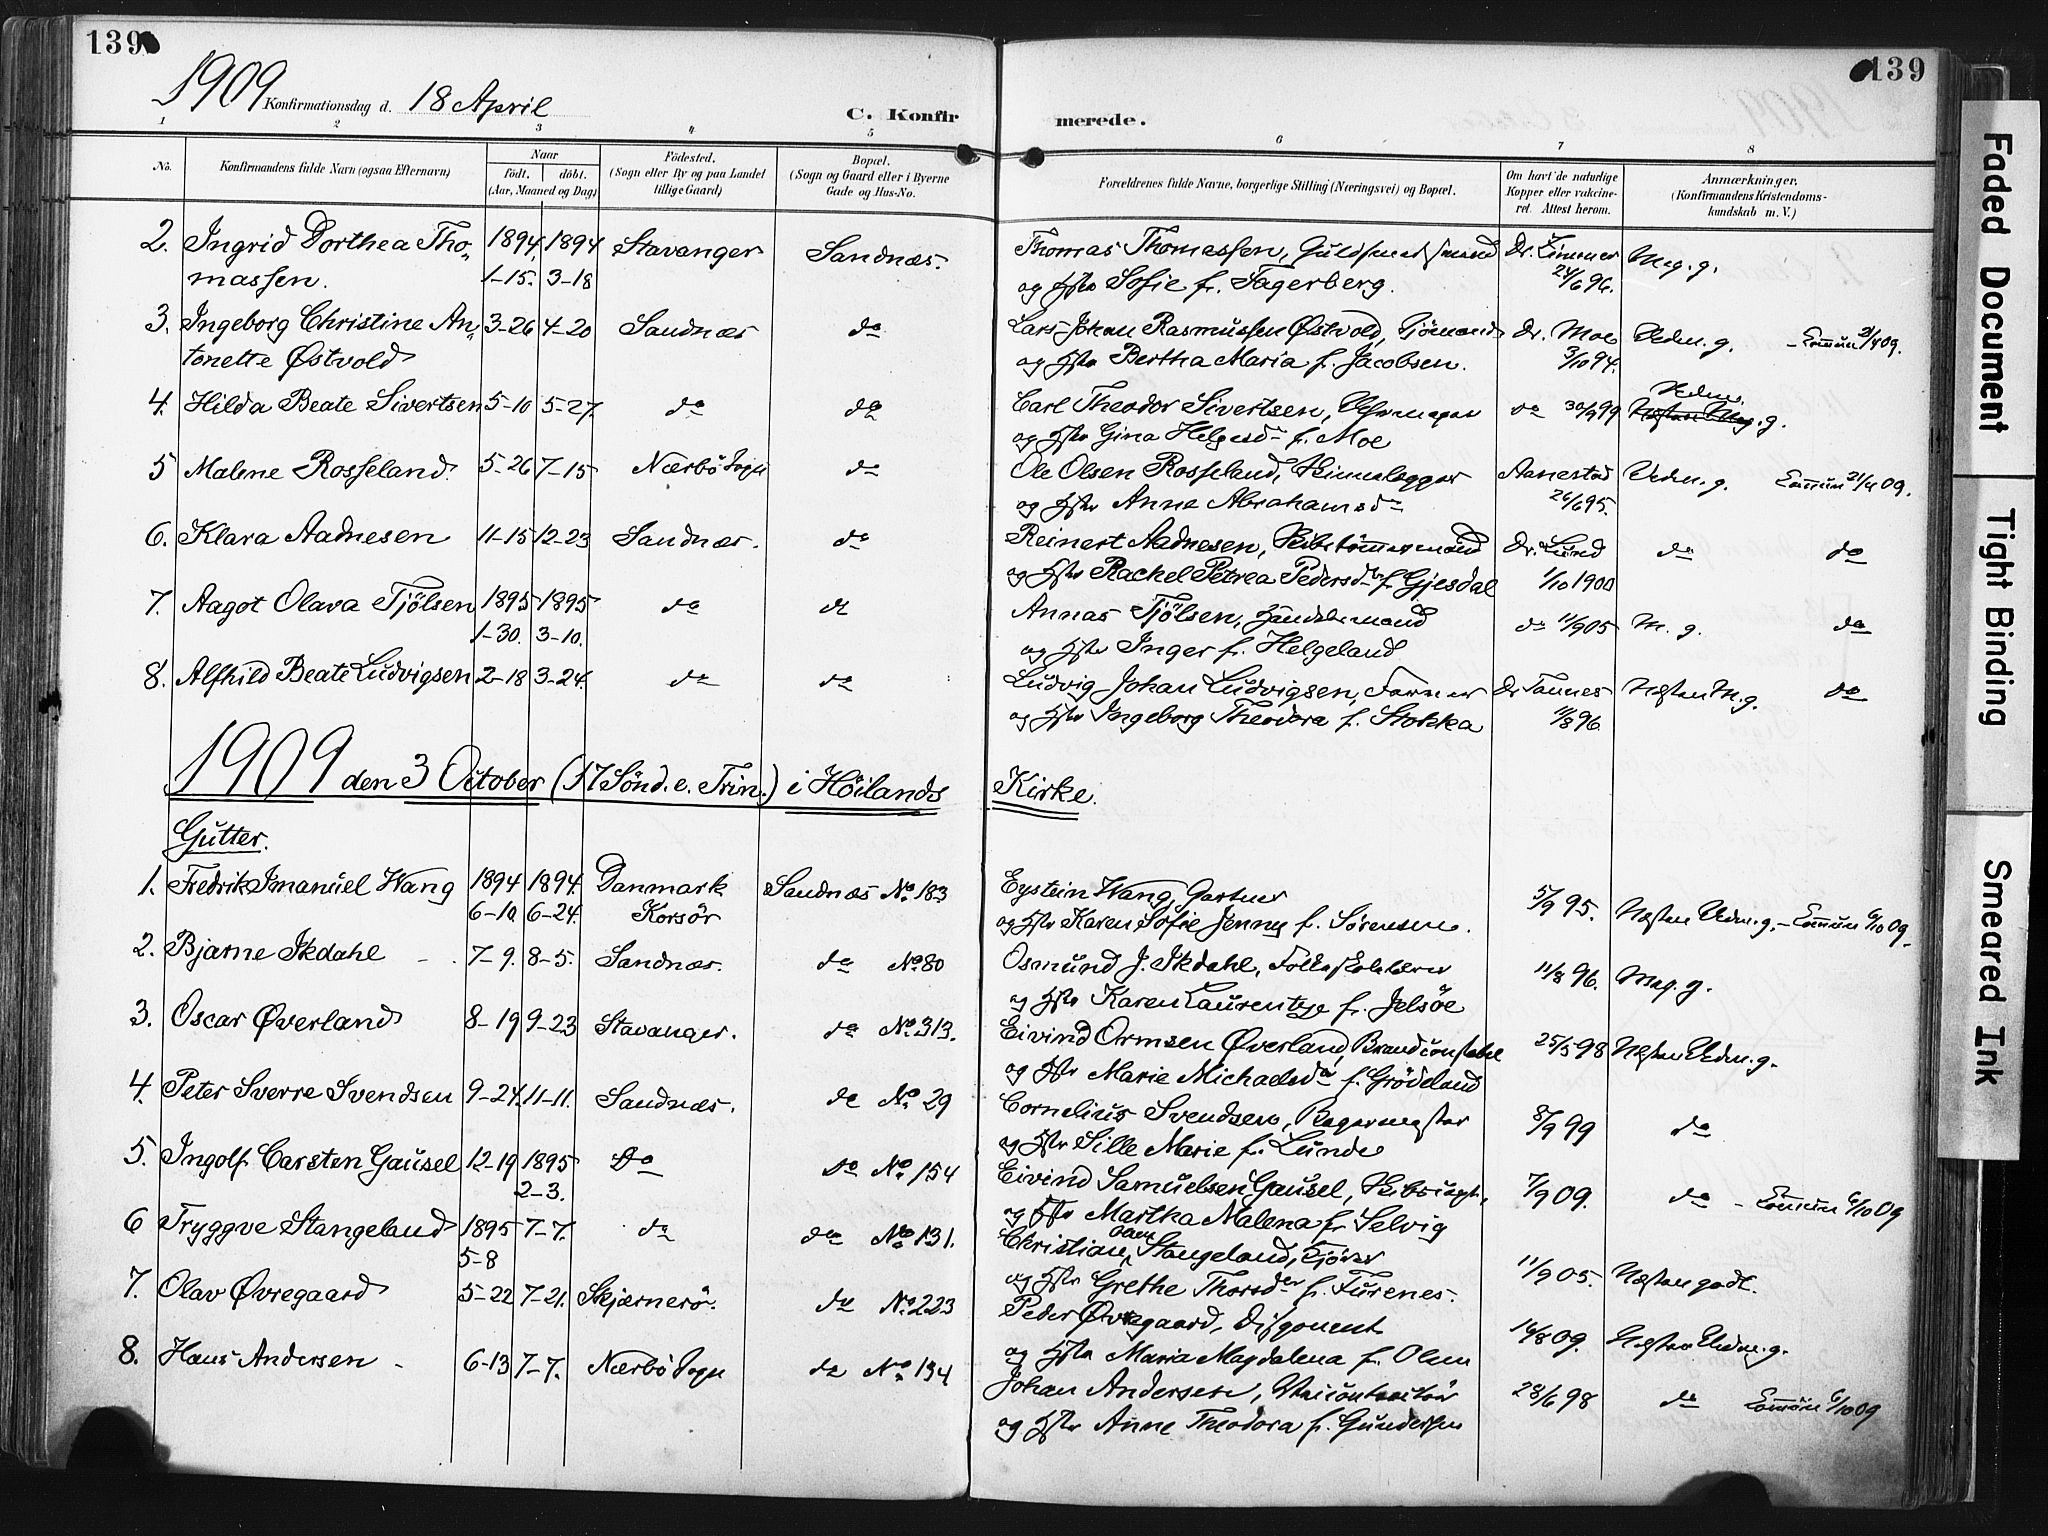 139
139
1909 Konfirmationsdag d. 18 April
C. Konfirmerede.
1 2 3 4 5 6 7 8
No.
Konfirmandens fulde Navn (ogsaa Efternavn)
Naar
födt. döbt.
(Aar, Maaned og Dag)
Födested.
(Sogn eller By og paa Landet
tillige Gaard)
Bopæl.
(Sogn og Gaard eller i Byerne
Gade og Hus-No.
Forældrenes fulde Navne, borgerlige Stilling (Næringsvei) og Bopæl.
Om havt de naturlige
Kopper eller vakcine-
ret. Attest herom.
Anmærkninger.
(Konfirmandens Kristendoms-
kundskab m. V.)
2. Ingrid Dorthea Tho- 1894 1894 Stavanger Sandnæs. Thomas Thomassen, Guldsmedsvend Dr. Zimmer Meg. g.
massen. 1-15. 3-18 og Hstr Sofie f. Fagerberg. 24/6 96.
3. Ingeborg Christine An- 3-26 4-20 Sandnæs do Lars Johan Rasmussen Østvold, Sjömand Dr. Moe Udm. g. 21/4 09.
tonette Østvold og Hstr Bertha Maria f. Jacobsen. 3/10 94.
4. Hilda Beate Sivertsen 5-10 5-27. do do Carl Theodor Sivertsen, Uhrmager do 30/9 99 Udm. g.
og Hstr Gina Helgesdr f. Moe
5 Malene Rosseland. 5-26 7-15 Nærbö Sogn do Ole Olsen Rosseland, Aanestad Udm. g. 21/4 09.
og Hstr Anne Abrahamsdr 26/6 95.
6. Klara Aadnesen 11-15 12-23 Sandnæs. do Reinert Aadnesen, Skibstömmermand Dr. Lund do do
og Hstr Rachel Petrea Pedersdr f. Gjesdal 1/10 1900
7. Aagot Olava Tjölsen 1895 1895 do do Annas Tjölsen, Handelsmand do 11/9 05 M. g. do
1-30. 3-10. og Hstr Inger f. Helgeland
8. Alfhild Beate Ludvigsen 2-18 3-24. do do Ludvig Johan Ludvigsen, Dr Tannes Næsten M. g. do
og Hstr Ingeborg Theodora f. Stokka 11/8 96.
1909 den 3 October (17 Sönd. e. Trin.) i Höilands Kirke.
Gutter.
1. Fredrik Imanuel Wang 1894 1894. Danmark Sandnæs No. 183 Eystein Wang, Gartner 5/9 95. Næsten Udm. g. 6/10 09.
6-10 6-24. Korsör og Hstr Karen Sofie Jenny f. Sørensen.
2. Bjarne Skdahl 7-9. 8-5. Sandnæs. do No. 80 Osmund J. Skdahl, Folkeskolelærer 11/8 96. Meg. g.
og Hstr Karen Laurentze f. Jelsöe
3. Oscar Øverland 8-19 9-23 Stavanger. do No. 313. Eivind Ormsen Øverland, Brandconstabel 25/5 98 Næsten Udm. g.
og Hstr Marie Michaelsdr f. Grödeland
4. Peter Sverre Svendsen 9-24. 11-11. Sandnæs. do No. 29 Cornelius Svendsen, Bagermester 8/9 99 do
og Hstr Sille Marie f. Lunde
5. Ingolf Carsten Gausel 12-19 1895 Do Do No 154 Eivind Samuelsen Gausel, 7/9 09. do 6/10 09
2-3. og Hstr Martha Malena f. Selvig
6 Tryggve Stangeland 1895 7-7. do do No 131. Christian Olsen Stangeland, Kjörer 11/9 05. Næsten godt.
5-8 og Hstr Grethe Thorsdr f. Furenes.
7. Olav Øvregaard 5-22 7-21. Skjærnerö. do No. 223 Peder Øvregaard, Disponent 14/8 09. Næsten Udm. g.
og Hstr Maria Magdalena f. Olsen
8. Hans Andersen 6-13 7-7. Nærbö Sogn do No. 134 Johan Andersen, 28/6 98 do 6/10 09
og Hstr Anne Theodora f. Gundersen
Faded Document
Tight Binding
Smeared Ink